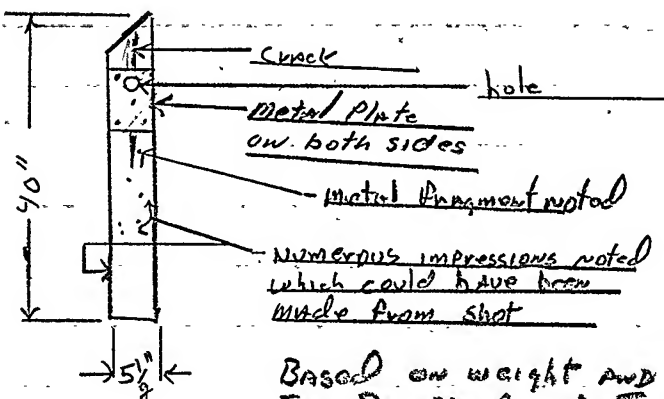 Crack
hole
Metal Plate
on both sides
Metal fragment noted
Numerous impressions noted
which could have been
made from shot
40"
5 1/2"
Based on weight and